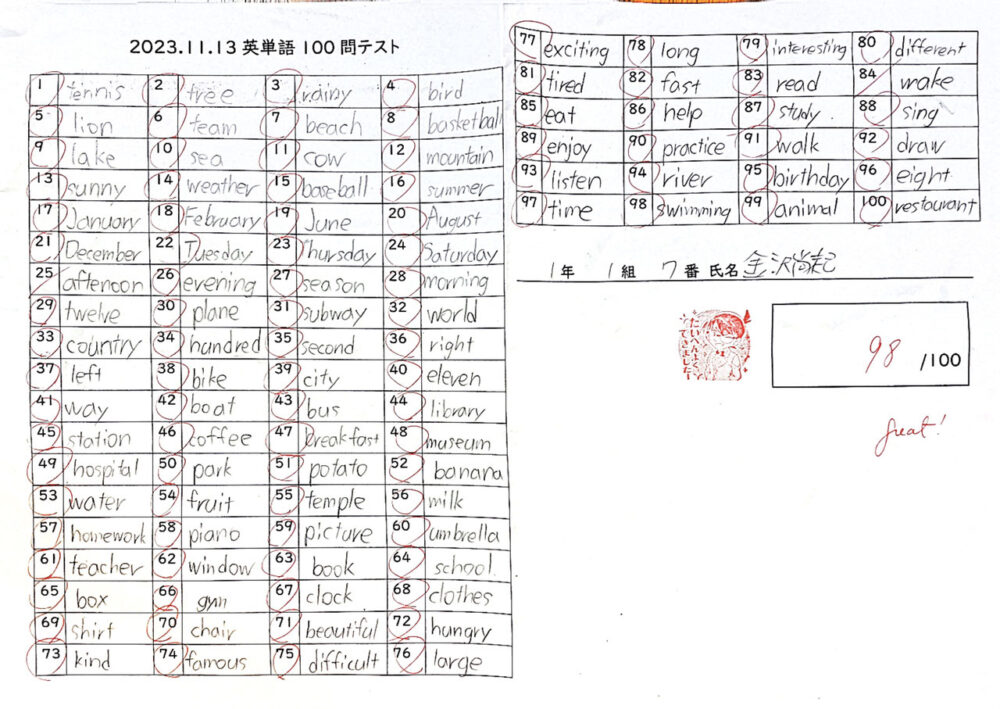 2023.11.13 英単語 100 問テスト
1 tennis 2 tree 3 rainy 4 bird
5 lion 6 team 7 beach 8 basketball
9 lake 10 sea 11 cow 12 mountain
13 sunny 14 weather 15 baseball 16 summer
17 January 18 February 19 June 20 August
21 December 22 Tuesday 23 Thursday 24 Saturday
25 afternoon 26 evening 27 season 28 morning
29 twelve 30 plane 31 subway 32 world
33 country 34 hundred 35 second 36 right
37 left 38 bike 39 city 40 eleven
41 way 42 boat 43 bus 44 library
45 station 46 coffee 47 breakfast 48 museum
49 hospital 50 park 51 potato 52 banana
53 water 54 fruit 55 temple 56 milk
57 homework 58 piano 59 picture 60 umbrella
61 teacher 62 window 63 book 64 school.
65 box 66 gym 67 clock 68 clothes
69 shirt 70 chair 71 beautiful 72 hungry
73 kind 74 famous 75 difficult 76 large
77 exciting 78 long 79 interesting 80 different
81 tired 82 fast 83 read 84 wake
85 eat 86 help 87 study. 88 sing
89 enjoy 90 practice 91 walk 92 draw
93 listen 94 river 95 birthday 96 eight
97 time 98 swimming 99 animal 100 restaurant
1年 1組 7番 氏名 金沢尚起
たいへんよくできました
98 /100
great!